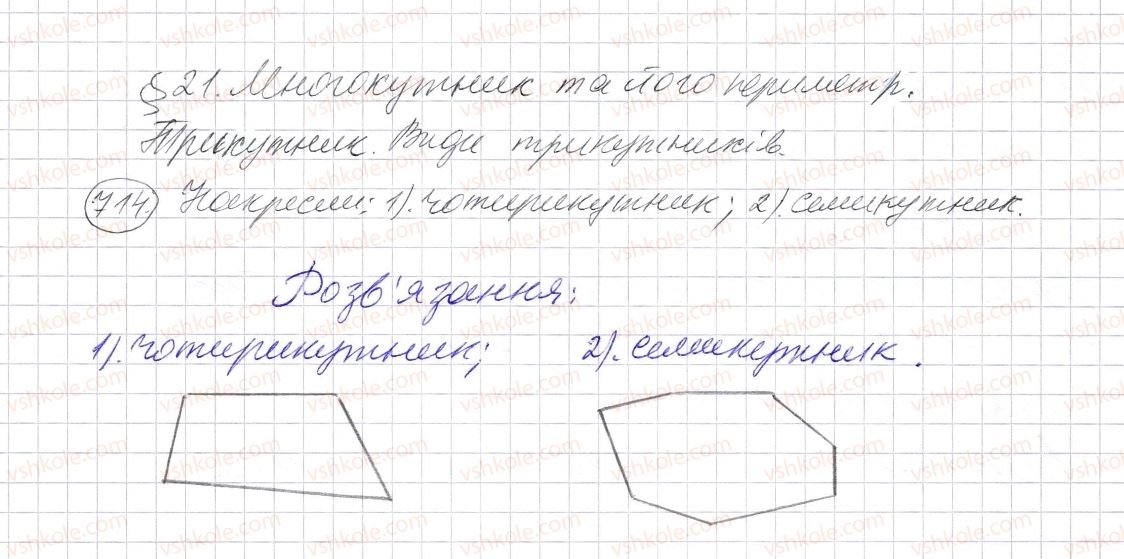 § 21. Многокутник та його периметр.
Трикутник. Види трикутників.
714. Накресли: 1). чотирикутник; 2). семикутник.
Розв'язання:
1). чотирикутник; 2). семикутник.
vshkole.com